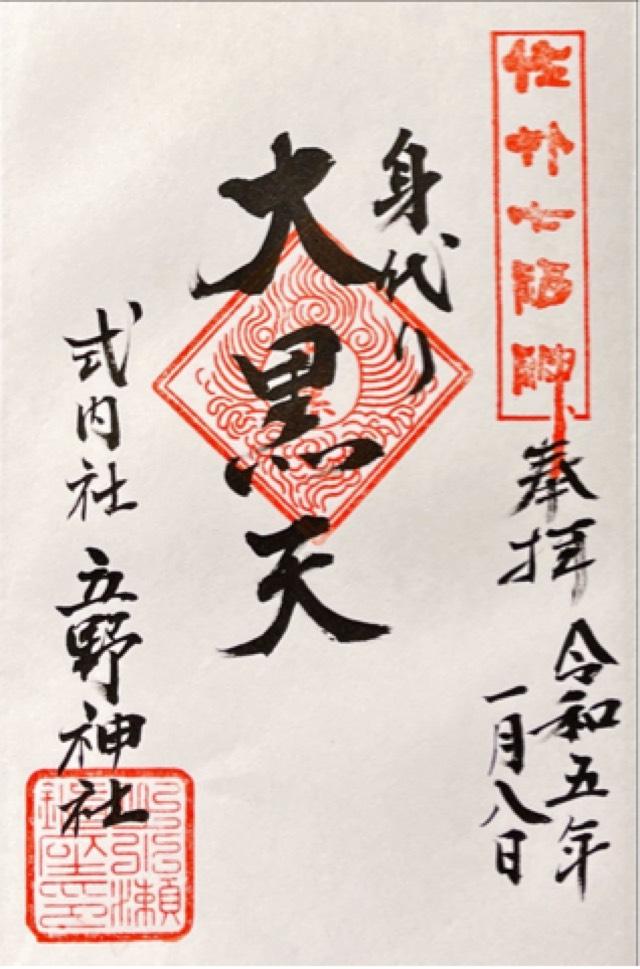 佐竹七福神
奉拝
令和五年
一月八日
身代り
大黒天
式内社 立野神社